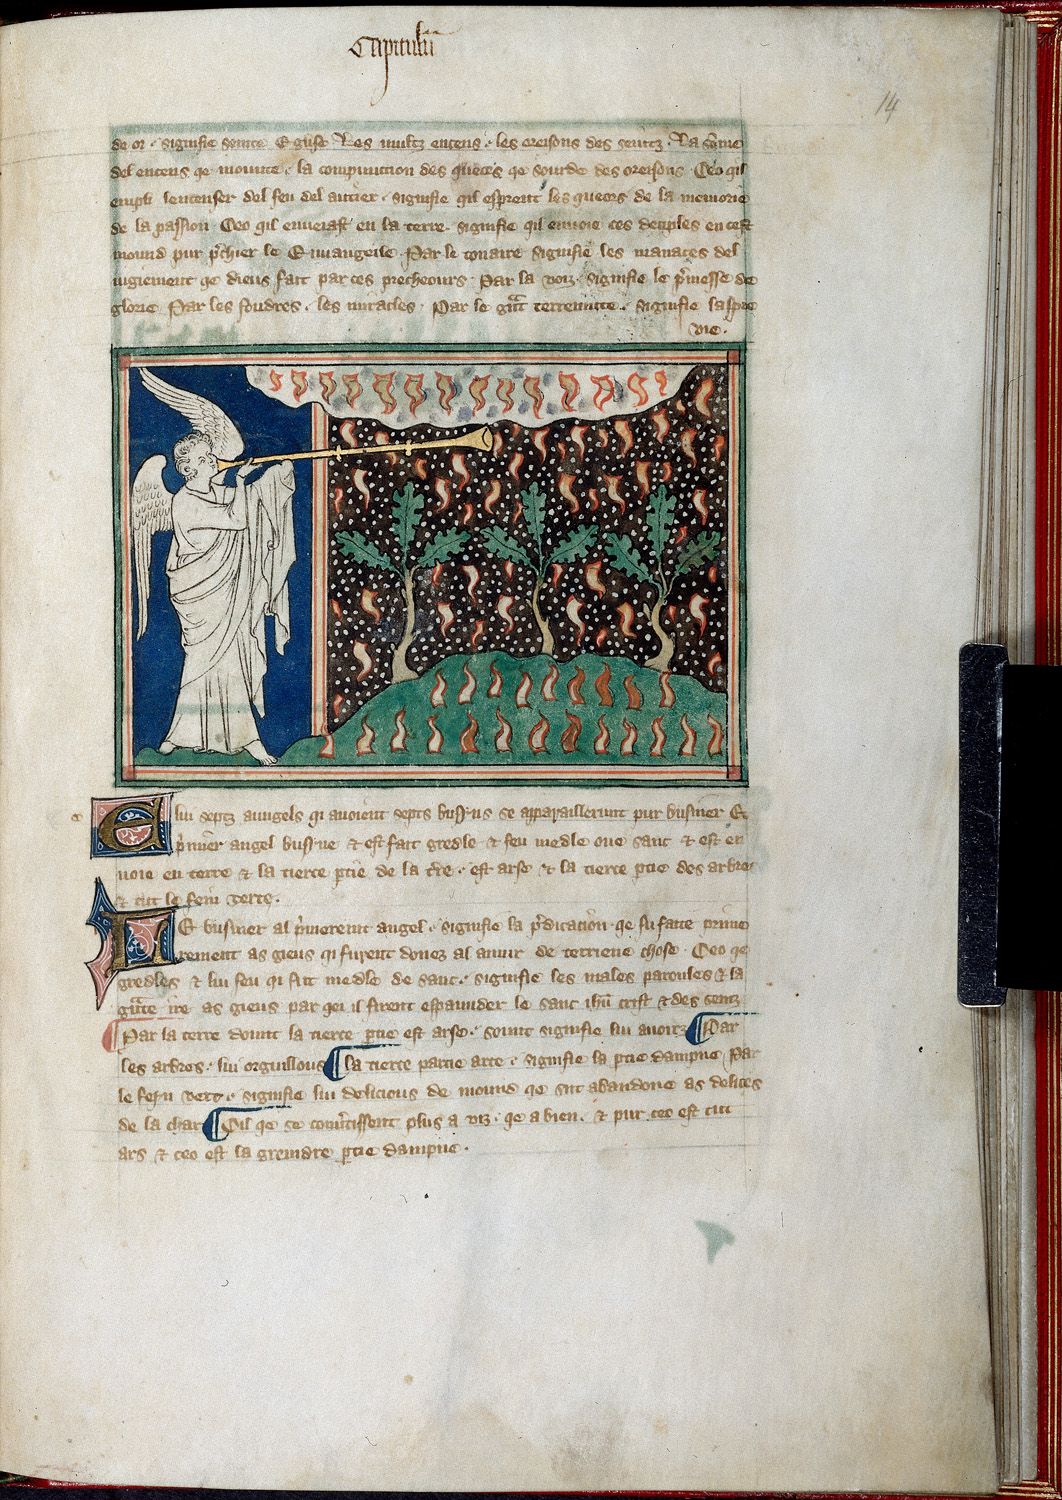 Capitulum
14
de or · signifie seinte Eglise Les multz encens · les oreisons des seintz · La fume
del encens qe mounte · la compunction des queors qe sourde des oreisons · Ceo qil
empli lencenser del feu del autier · signifie qil esprent les queors de la memorie
de la passion Ceo qil enveiast en la terre · signifie qil envoie ces deciples en cest
mound pur pͬchier le Evvangeile · Par le tonaire signifie les manaces del
iugiement qe dieus fait par ces precheours · Par la voiz · signifie le pͬmesse de
glorie Par les foudres · les miracles · Par le gͣnt terremute · signifie laspre
vie ·
E lui septz aungels qi avoient septz busines se apparaillerunt pur businer E
pͬmier angel busine & est fait gresle & feu medle oue sanc & est en
voie en terre & la tierce ptie de la tͬre · est arse & la tierce ptie des arbres
& tut le fein verte ·
Le businer al pͬmerein angel · signifie la pͬdication qe fu faite prime
rement as gieus qi furent donez al amur de terriene chose · Ceo qe
gresles & lui feu qi fut medle de sanc · signifie les males paroules & la
gͣnte ire as gieus par qei il firent espaunder le sanc ihū crist & des seintz
Par la terre dount la tierce ptie est arse · sount signifie lui avoirs Par
les arbres · lui orguillous la tierce partie arce · signifie la ptie dampne Par
le fein vert · signifie lui delicious de mound qe sunt abandone as delices
de la char Cil qe se convͬtissent plus a viz · qe a bien · & pur ceo est tut
ars & ceo est la greindre ptie dampne ·